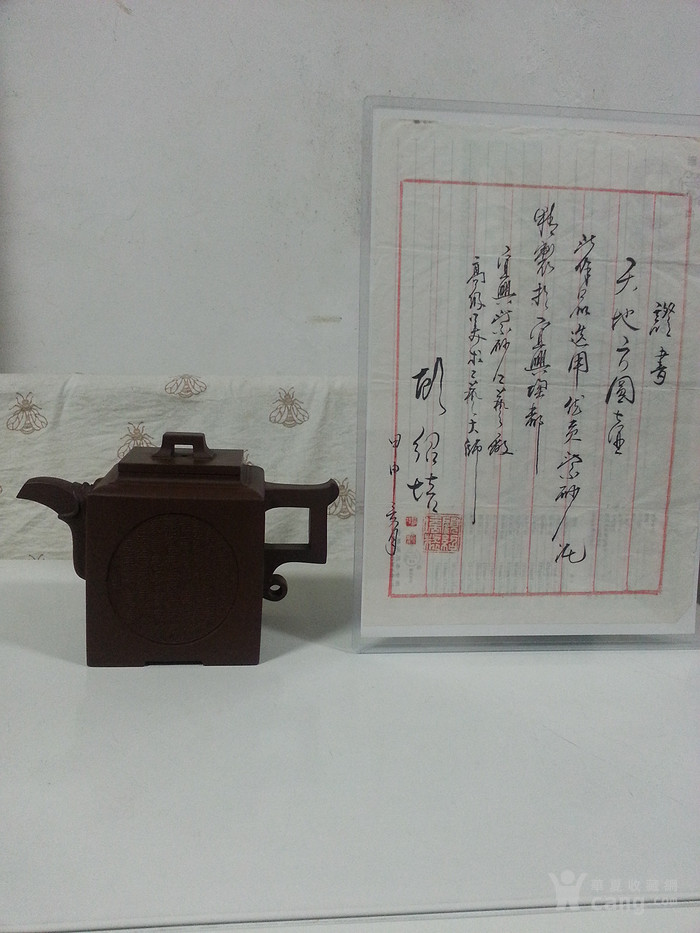 證書
天地方圓壺
此作品选用优质紫砂泥
精製於宜興陶都
宜興紫砂工藝廠
高级美术工藝大師
顾绍培
甲申 月
華夏收藏網
cang.com